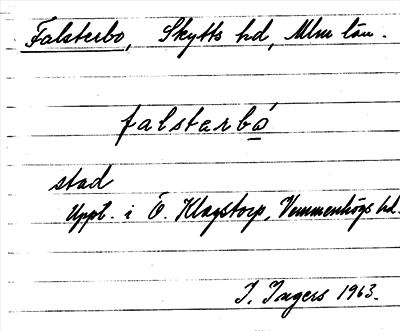 Falsterbo, Skytts hd, Mlm län.
falsterbó
stad
Uppt. i Ö. Klagstorp, Vemmenhögs hd.
I. Ingers 1963.